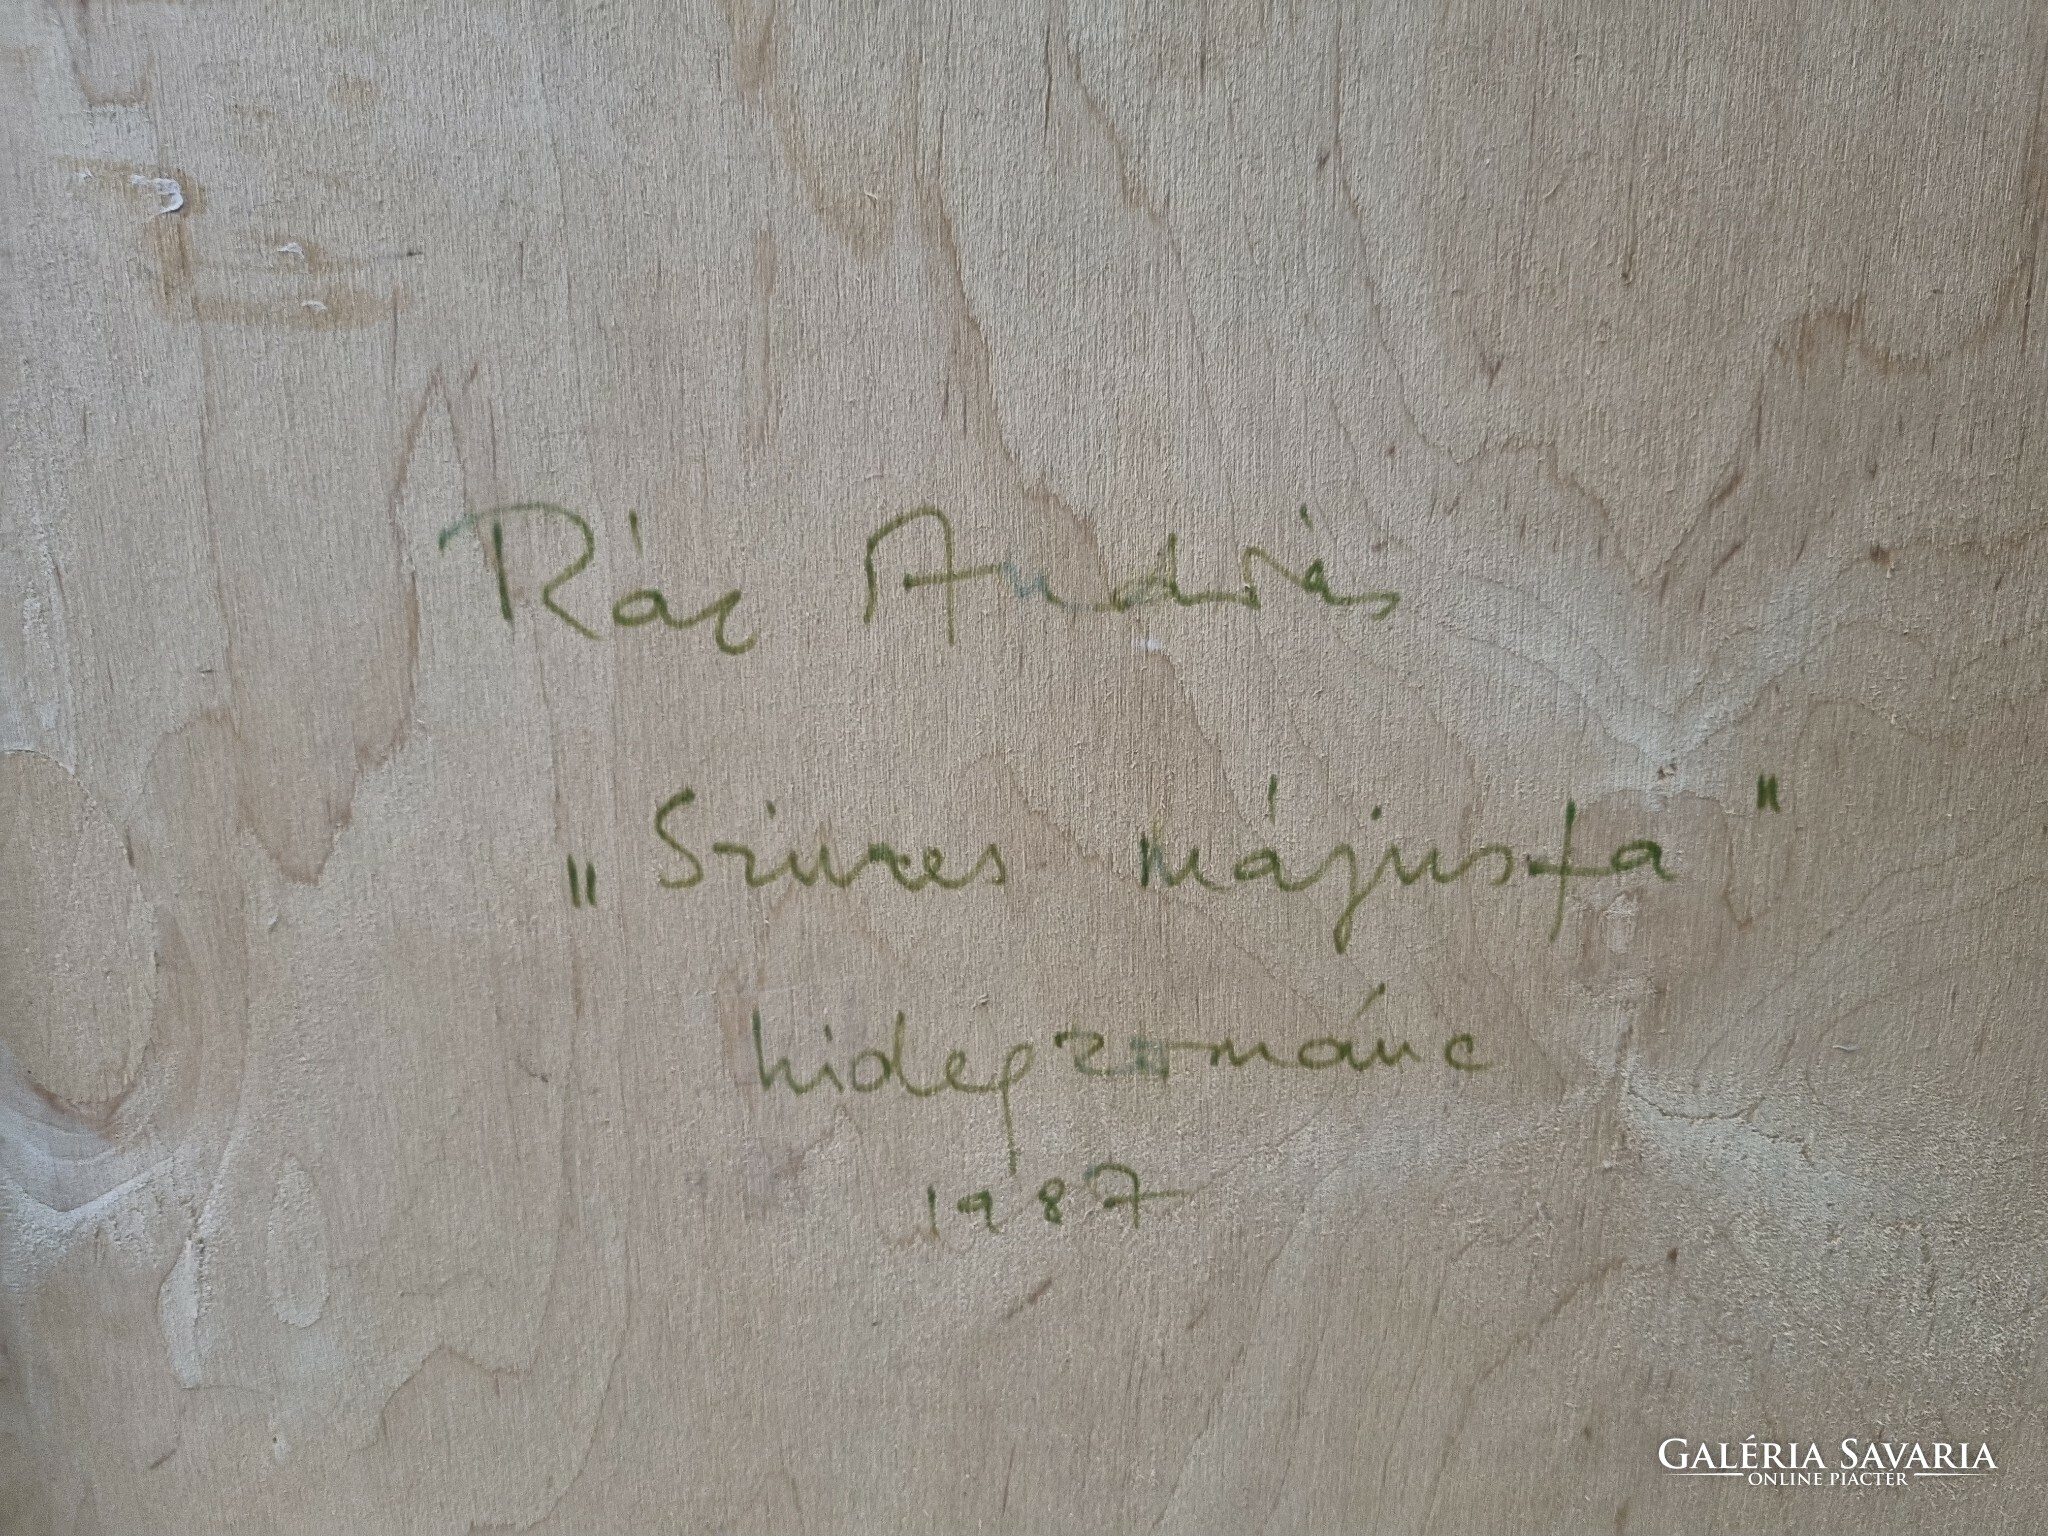 Rác András
„Színes májusfa"
hidegzománc
1987
GALÉRIA SAVARIA
ONLINE PIACTÉR